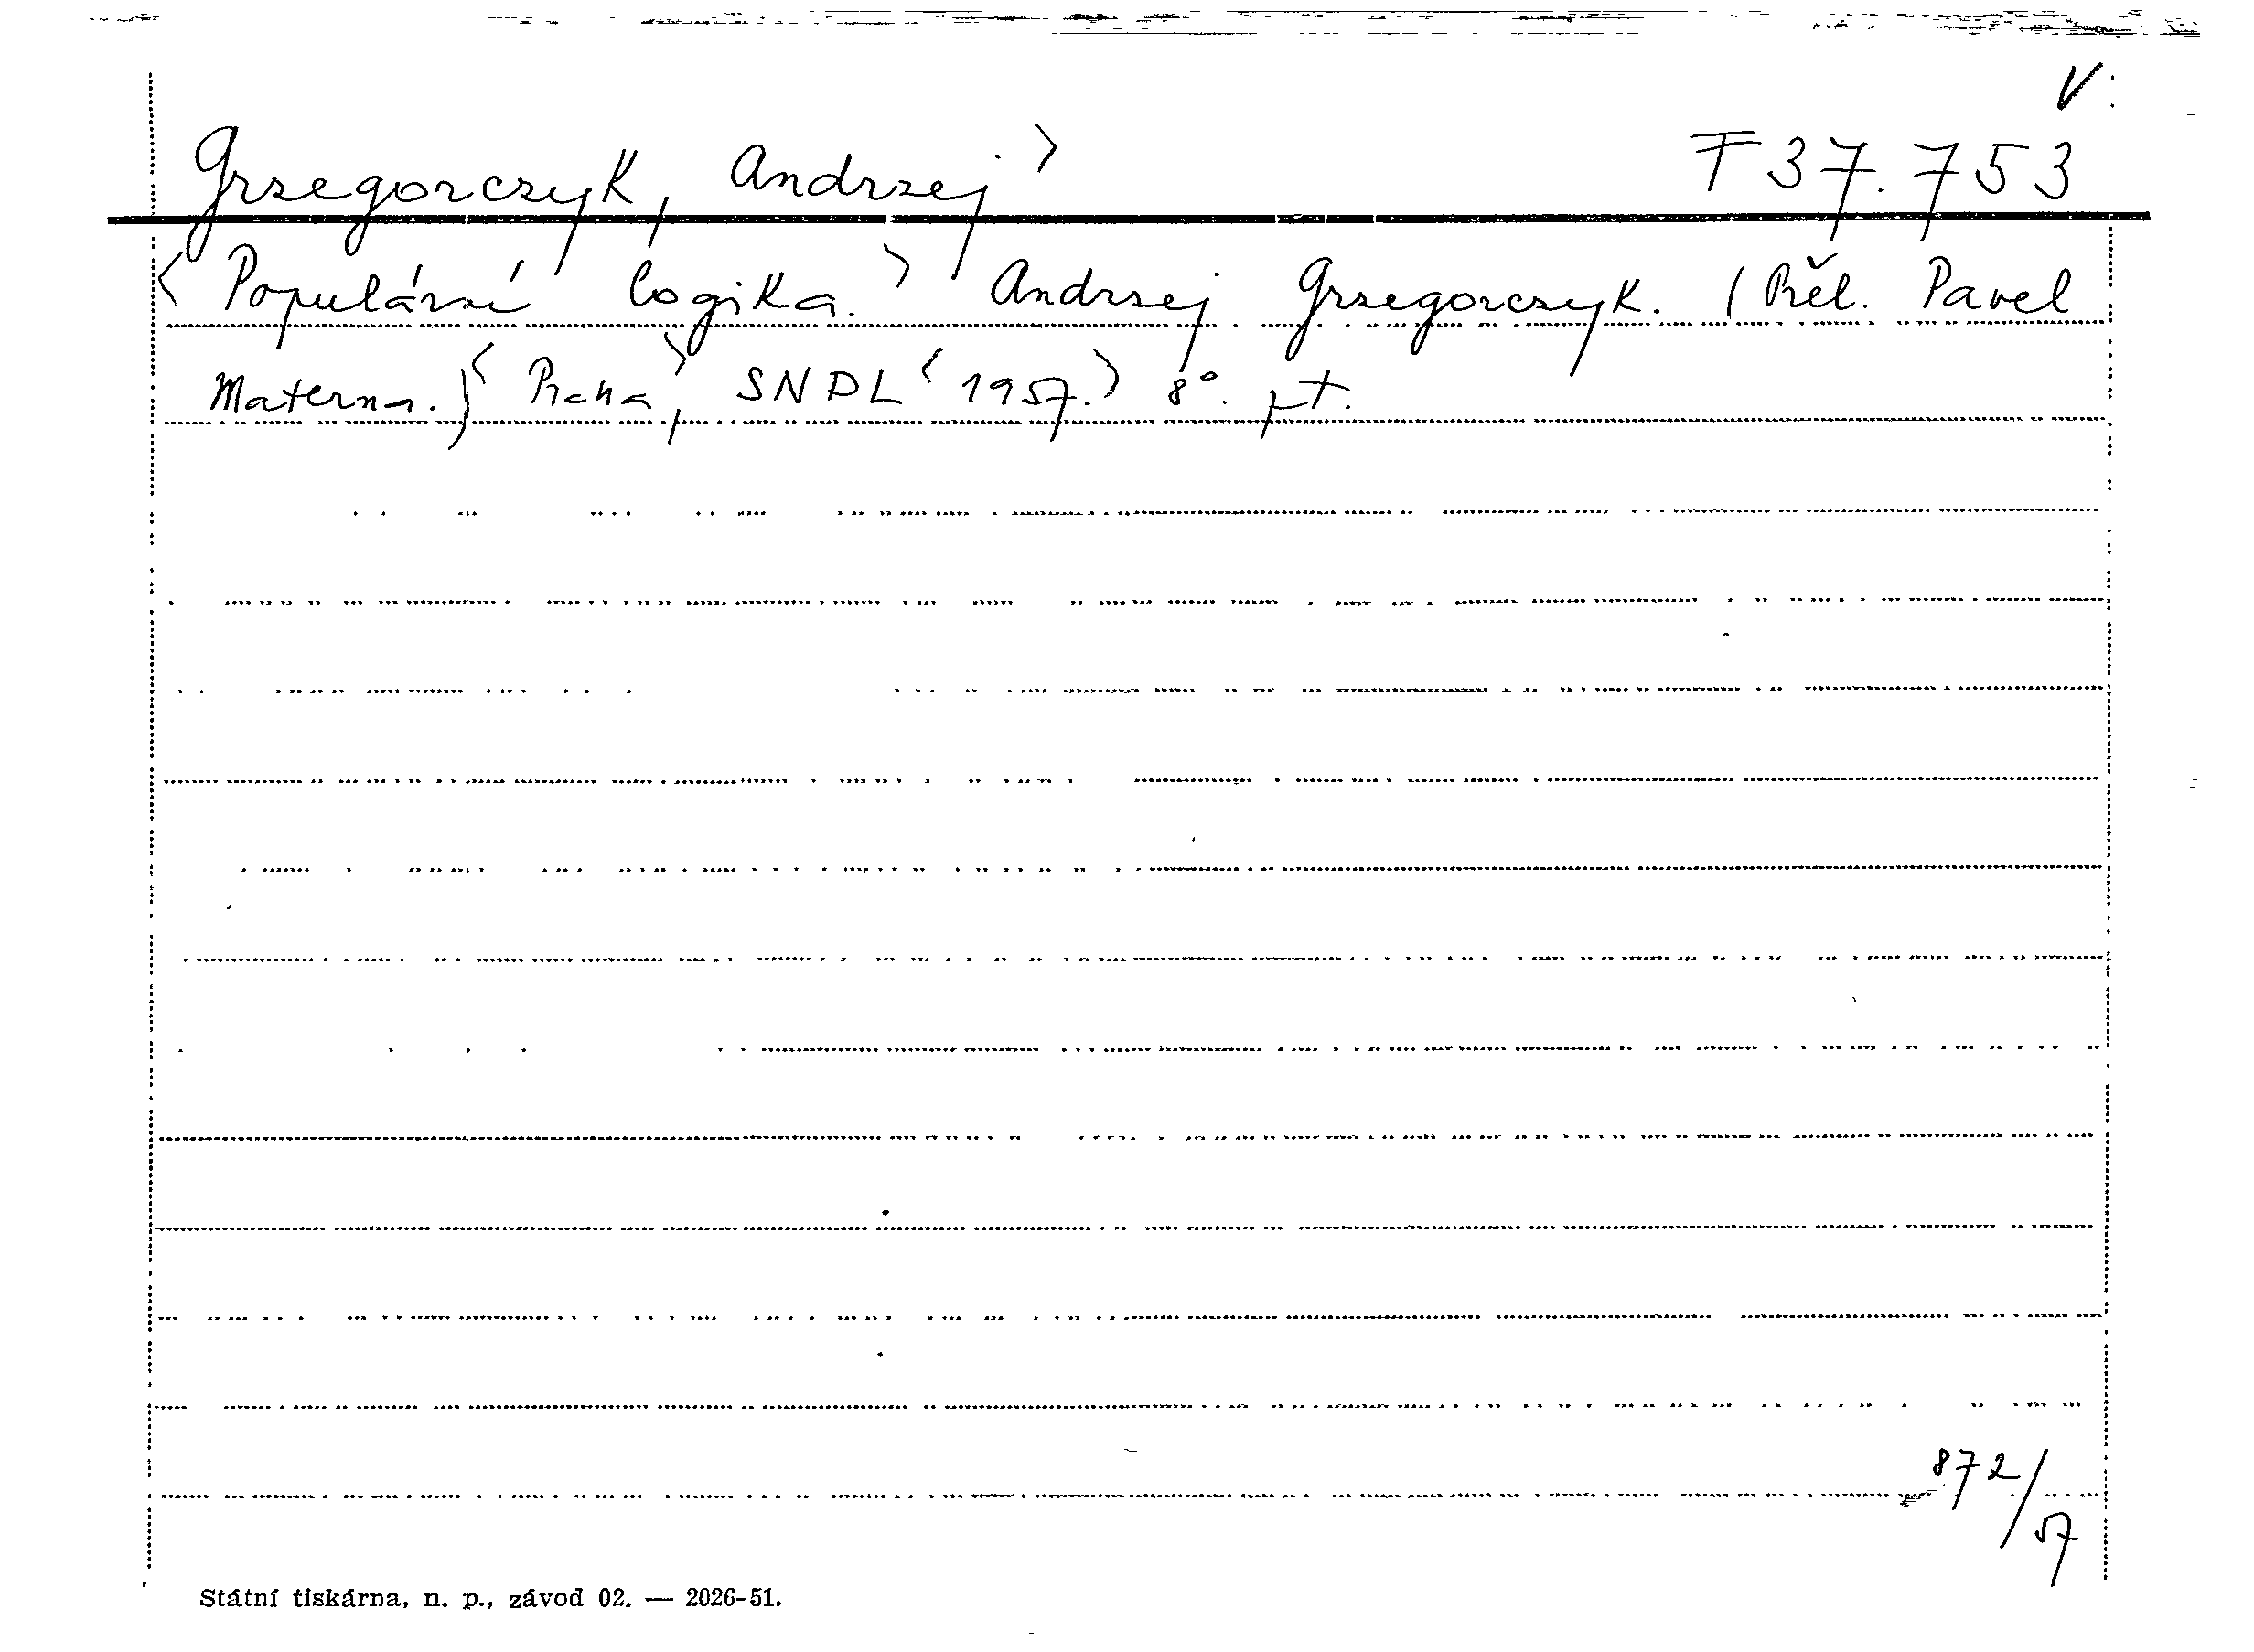 V
Grzegorczyk, Andrzej> F 37.753
<Populární logika.> Andrzej Grzegorczyk. (Přel. Pavel
Materna.) <Praha>, SNDL <1957.> 8°. pt.
872/57
Státní tiskárna, n. p., závod 02. — 2026-51.